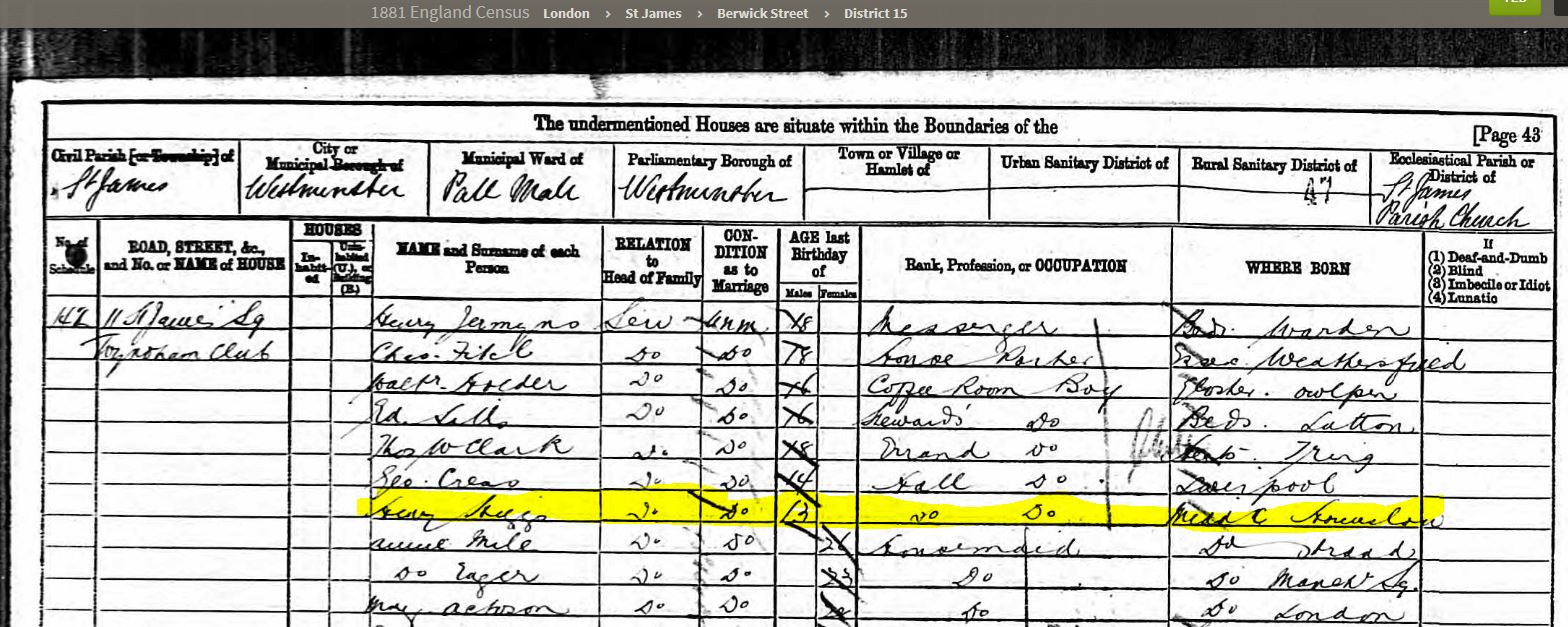 1881 England Census London > St James > Berwick Street > District 15
The undermentioned Houses are situate within the Boundaries of the
[Page 43
Civil Parish [or Township] of
City or Municipal Borough of
Municipal Ward of
Parliamentary Borough of
Town or Village or Hamlet of
Urban Sanitary District of
Rural Sanitary District of
Ecclesiastical Parish or District of
St James Westminster Pall Mall Westminster 47 St James Parish Church
No. of Schedule
ROAD, STREET, &c., and No. or NAME of HOUSE
HOUSES
In-habit-ed
Un-inhabited (U.), or Building (B.)
NAME and Surname of each Person
RELATION to Head of Family
CON-DITION as to Marriage
AGE last Birthday of
Males Females
Rank, Profession, or OCCUPATION
WHERE BORN
If
(1) Deaf-and-Dumb
(2) Blind
(3) Imbecile or Idiot
(4) Lunatic
142 11 St James Sq Henry Jermyns Serv Unm 18 Messenger Beds. Warden
Club Chas. Fitch Do Do 18 House Porter Essex Weathersfield
Walt. Holder Do Do 16 Coffee Room Boy Gloster. Owlpen
Ed. Do Do 16 Stewards Do Beds. Lutton
Thos W Clark Do Do 18 Errand Do Tring
Geo. Do Do 14 Hall Do Liverpool
Henry Higgs Do Do 13 Do Do Midd Hounslow
Annie Mile Do Do 26 Housemaid Do Strand
Do Eager Do Do 23 Do Do Manchr Sq.
Do Do Do Do London